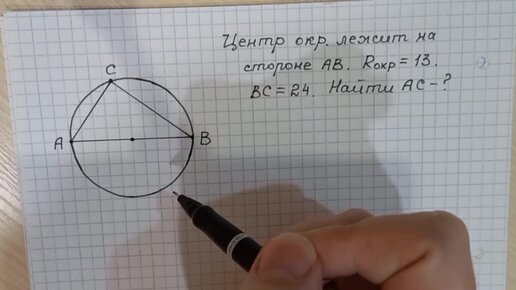 Центр окр. лежит на
стороне AB. Rокр = 13.
BC = 24. Найти AC - ?
C
A
B